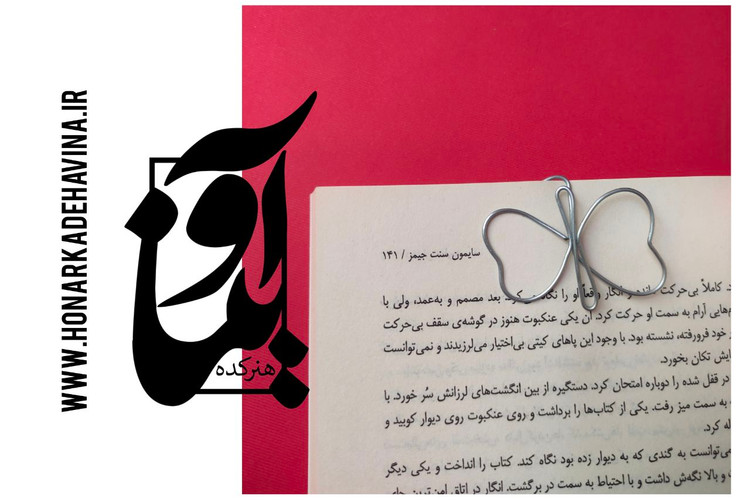 WWW.HONARKADEHAVINA.IR
آوینا
هنرکده
سایمون سنت جیمز / ۱۴۱
کاملاً بی‌حرکت انگار واقعاً او را بعد مصمم و به‌عمد، ولی با
آرام به سمت او حرکت کرد. آن یکی عنکبوت هنوز در گوشه‌ی سقف بی‌حرکت
خود فرورفته، نشسته بود. با وجود این پاهای کیتی بی‌اختیار می‌لرزیدند و نمی‌توانست
تکان بخورد.
در قفل شده را دوباره امتحان کرد. دستگیره از بین انگشت‌های لرزانش سُر خورد. با
به سمت میز رفت. یکی از کتاب‌ها را برداشت و روی عنکبوت روی دیوار کوبید و
کرد.
می‌توانست به گندی که به دیوار زده بود نگاه کند. کتاب را انداخت و یکی دیگر
و بالا نگهش داشت و با احتیاط به سمت در برگشت. انگار در اتاق امن‌ترین جای